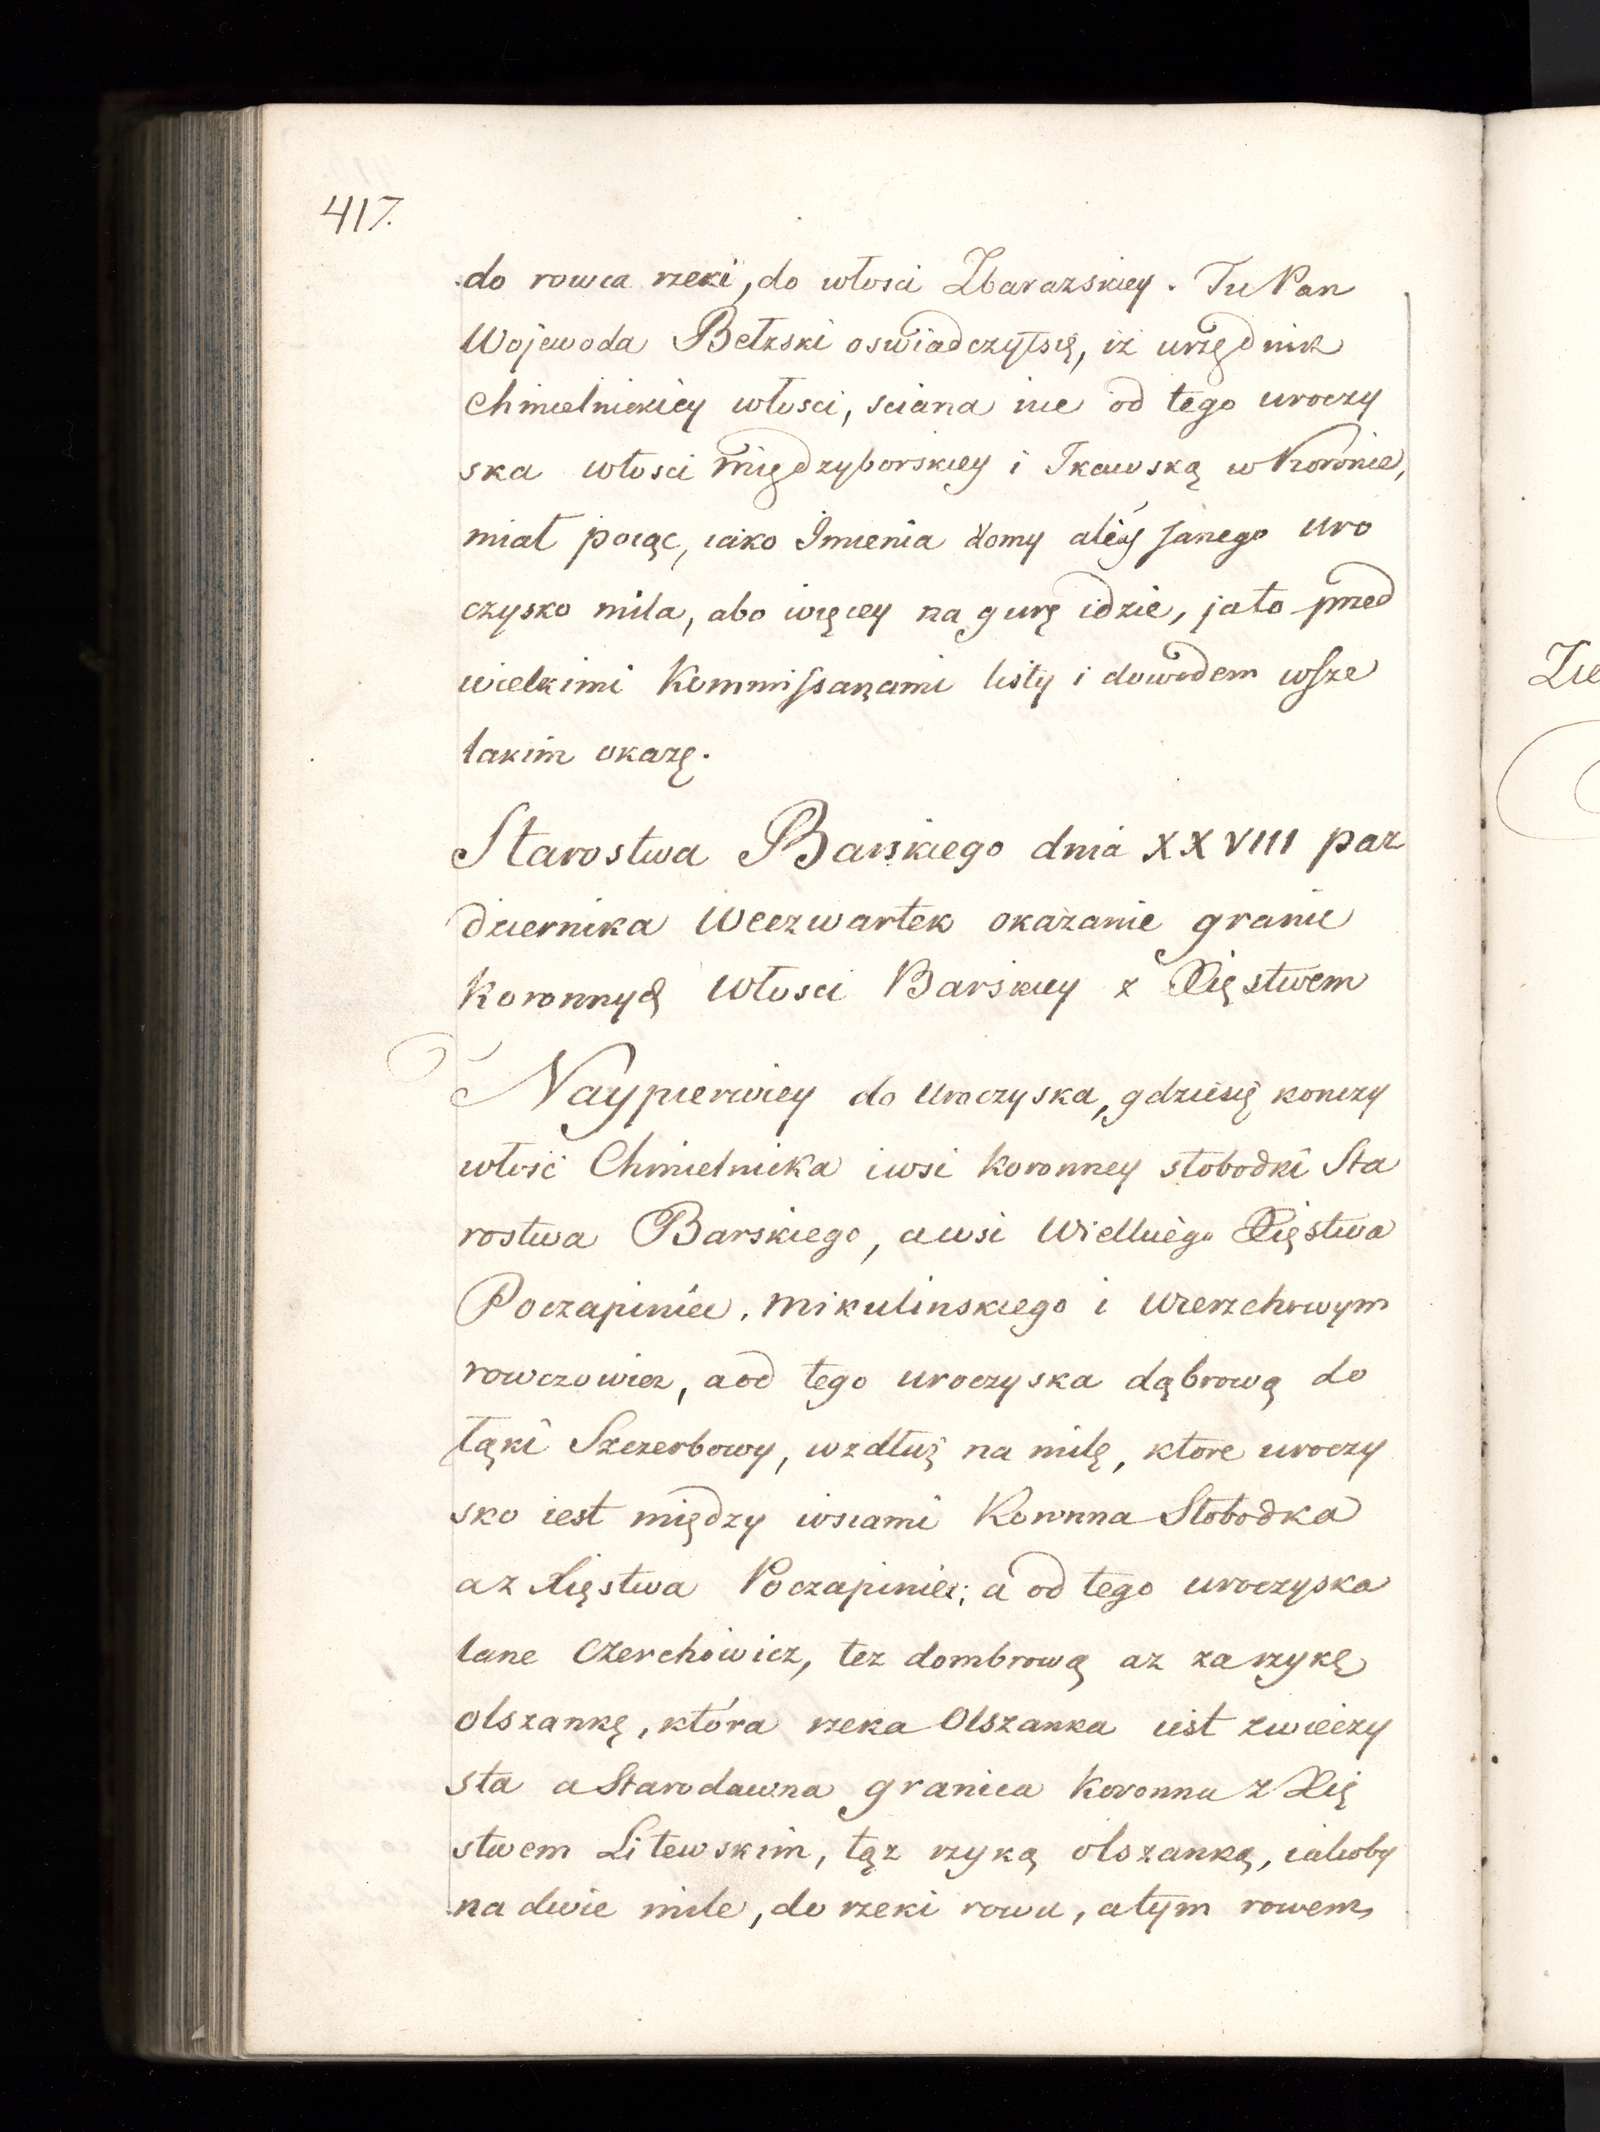 417.
do rowca rzeki, do włosci Zbarazskiey. Tu Pan
Wojewoda Bełzski oswiadczyłsię, iż urzędnik
Chmielnickiey włosci, sciana nie od tego uroczy
ska włosci międzyborskiey i Ikawską w Koronie,
miał począc, iako Imienia domy Janego uro
czysko mila, abo więcey na gurę idzie, ja to przed
wielkimi Kommissarzami listy i dowodem wsze
lakim okazę.
Starostwa Barskiego dnia XXVIII paz
dziernika Weczwartek okazanie granic
Koronnych włosci Barskiey z Xięstwem
Naypierwiey do Uroczyska, gdziesię konczy
włość Chmielnicka iwsi koronney słobodki Sta
rostwa Barskiego, awsi Wielkiego Xięstwa
Poczapiniec. Mikulinskiego i Wierzchowym
rowczowicz, aod tego uroczyska dąbrową do
łąki Szczerbowy, wzdłuż na milę, ktore uroczy
sko iest między wsiami Koronna Słobodka
az Xięstwa Poczapiniec; a od tego uroczyska
lane Czerchowicz, tez dombrową az za rzykę
Olszankę, która rzeka Olszanka iest zwieczy
sta a Starodawna granica Koronna z Xię
stwem Litewskim, tąz rzyką olszanką, iakoby
na dwie mile, do rzeki rowu, atym rowem
Zie